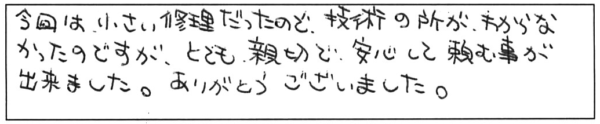 今回は、小さい修理だったので、技術の所が、わからな
かったのですが、とても、親切で、安心して頼む事が
出来ました。ありがとうございました。